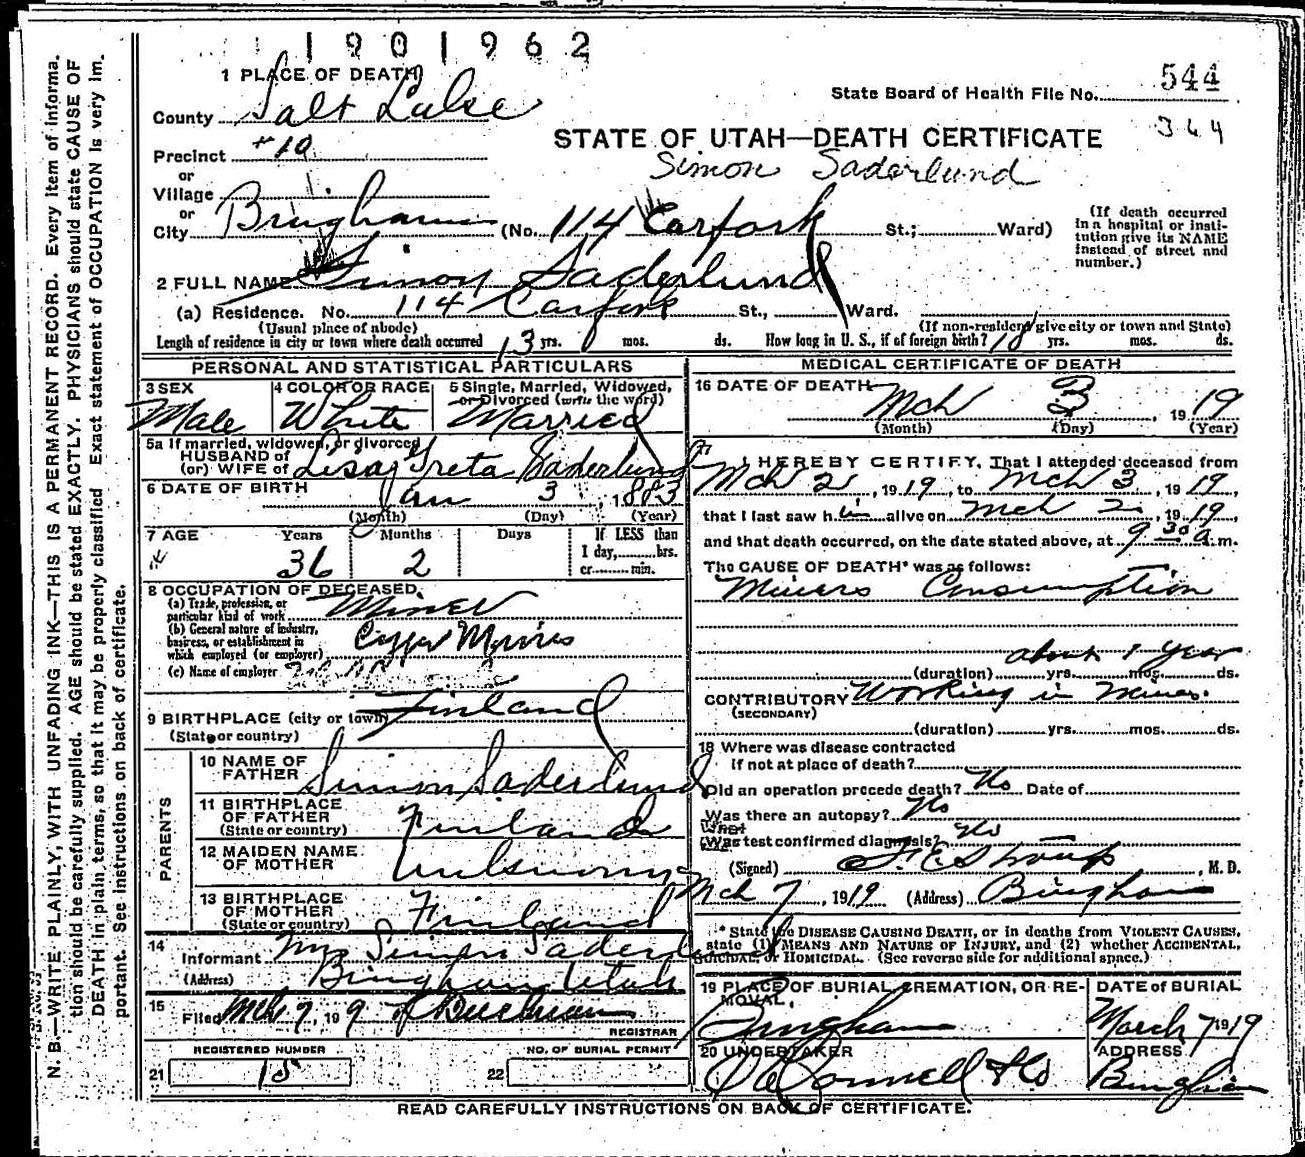 1901962
1 PLACE OF DEATH
State Board of Health File No. 544
County Salt Lake
364
STATE OF UTAH—DEATH CERTIFICATE
Precinct #19
Simon Saderlund
or
Village
or
City Bingham (No. 114 Carfork St.; Ward)
(If death occurred in a hospital or institution give its NAME instead of street and number.)
2 FULL NAME Simon Saderlund
(a) Residence. No. 114 Carfork St., Ward.
(Usual place of abode) (If non-resident give city or town and State)
Length of residence in city or town where death occurred 13 yrs. mos. ds. How long in U. S., if of foreign birth? 18 yrs. mos. ds.
PERSONAL AND STATISTICAL PARTICULARS
3 SEX Male
4 COLOR OR RACE White
5 Single, Married, Widowed, or Divorced (write the word) Married
5a If married, widowed, or divorced
HUSBAND of
(or) WIFE of Lisa Greta Saderlund
6 DATE OF BIRTH Jan 3, 1883
(Month) (Day) (Year)
7 AGE Years Months Days If LESS than
1 day, hrs.
or min.
36 2
8 OCCUPATION OF DECEASED.
(a) Trade, profession, or
particular kind of work Miner
(b) General nature of industry,
business, or establishment in
which employed (or employer) Copper Mines
(c) Name of employer
9 BIRTHPLACE (city or town) Finland
(State or country)
PARENTS
10 NAME OF
FATHER Simon Saderlund
11 BIRTHPLACE
OF FATHER Finland
(State or country)
12 MAIDEN NAME
OF MOTHER
13 BIRTHPLACE
OF MOTHER Finland
(State or country)
14
Informant Mrs Simon Saderlund
(Address) Bingham Utah
15
Filed Mch 7, 19 9
REGISTRAR
REGISTERED NUMBER
21 15
NO. OF BURIAL PERMIT
22
MEDICAL CERTIFICATE OF DEATH
16 DATE OF DEATH Mch 3, 1919
(Month) (Day) (Year)
17 I HEREBY CERTIFY, That I attended deceased from
Mch 2, 1919, to Mch 3, 1919,
that I last saw him alive on Mch 2, 1919,
and that death occurred, on the date stated above, at 9 30 a.m.
The CAUSE OF DEATH* was as follows:
Miners Consumption
about 1 year
(duration) yrs. mos. ds.
CONTRIBUTORY Working in mines.
(SECONDARY)
(duration) yrs. mos. ds.
18 Where was disease contracted
if not at place of death?
Did an operation precede death? No Date of
Was there an autopsy? No
What
Was test confirmed diagnosis? No
(Signed) F. E. Straup, M. D.
Mch 7, 1919 (Address) Bingham
* State the DISEASE CAUSING DEATH, or in deaths from VIOLENT CAUSES,
state (1) MEANS AND NATURE OF INJURY, and (2) whether ACCIDENTAL,
SUICIDAL or HOMICIDAL. (See reverse side for additional space.)
19 PLACE OF BURIAL, CREMATION, OR REMOVAL, Bingham
DATE of BURIAL March 7 1919
20 UNDERTAKER O'Donnell & Co
ADDRESS Bingham
READ CAREFULLY INSTRUCTIONS ON BACK OF CERTIFICATE.
N. B.—WRITE PLAINLY, WITH UNFADING INK—THIS IS A PERMANENT RECORD. Every item of information should be carefully supplied. AGE should be stated EXACTLY. PHYSICIANS should state CAUSE OF DEATH in plain terms, so that it may be properly classified. Exact statement of OCCUPATION is very important. See instructions on back of certificate.